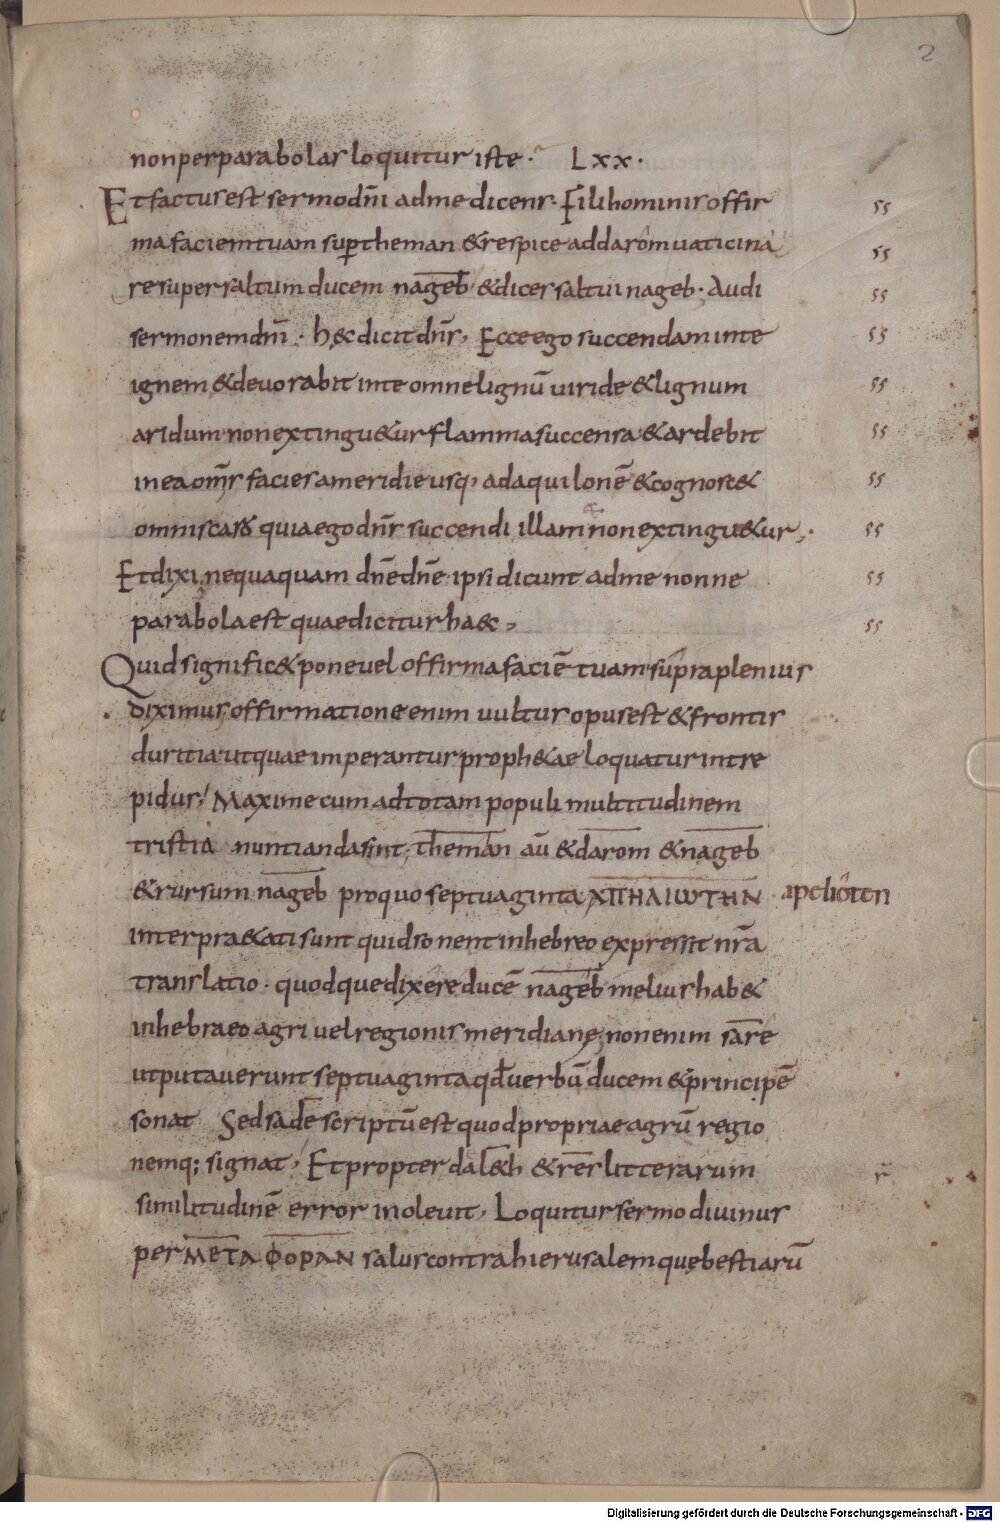 2
non per parabolas loquitur iste · LXX ·
Et factus est sermo dn̄i ad me dicens · Fili hominis offir
ma faciem tuam sup theman & respice ad darom uaticina
re super saltum ducem nageb & dices saltui nageb · Audi
sermonem dn̄i · hęc dicit dn̄s, Ecce ego succendam in te
ignem & deuorabit in te omne lignū uiride & lignum
aridum non extingu&ur flamma succensa & ardebit
in ea om̄s facies a meridie usq; ad aquilonē & cognosc&
omnis caro quia ego dn̄s succendi illam & non extingu&ur,·
Et dixi nequaquam dn̄e dn̄e ipsi dicunt ad me nonne
parabola est quae dicitur haec,
Quid signific& pone uel offirma faciē tuam supra plenius
diximus, offirmatione enim uultus opus est & frontis
duritia ut quae imperantur proph&ae loquatur intre
pidus, Maxime cum ad totam populi multitudinem
tristia nuntianda sint, theman aū & darom & nageb
& rursum nageb pro quo septuaginta ΑΠΗΛΙΩΤΗΝ · apelioten
interpra&ati sunt quid sonent in hebreo expressit nr̄a
translatio · quodque dixere ducē nageb melius hab&
in hebraeo agri uel regionis meridianę, non enim sare
ut putauerunt septuaginta qđ uerbū ducem & principē
sonat Sed sade scriptū est quod propriae agrū regio
nemq; signat, Et propter dal&h & res litterarum
similitudinē error inoleuit, Loquitur sermo diuinus
per ΜΕΤΑΦΟΡΑΝ salus contra hierusalem quę bestiarū
Digitalisierung gefördert durch die Deutsche Forschungsgemeinschaft - DFG